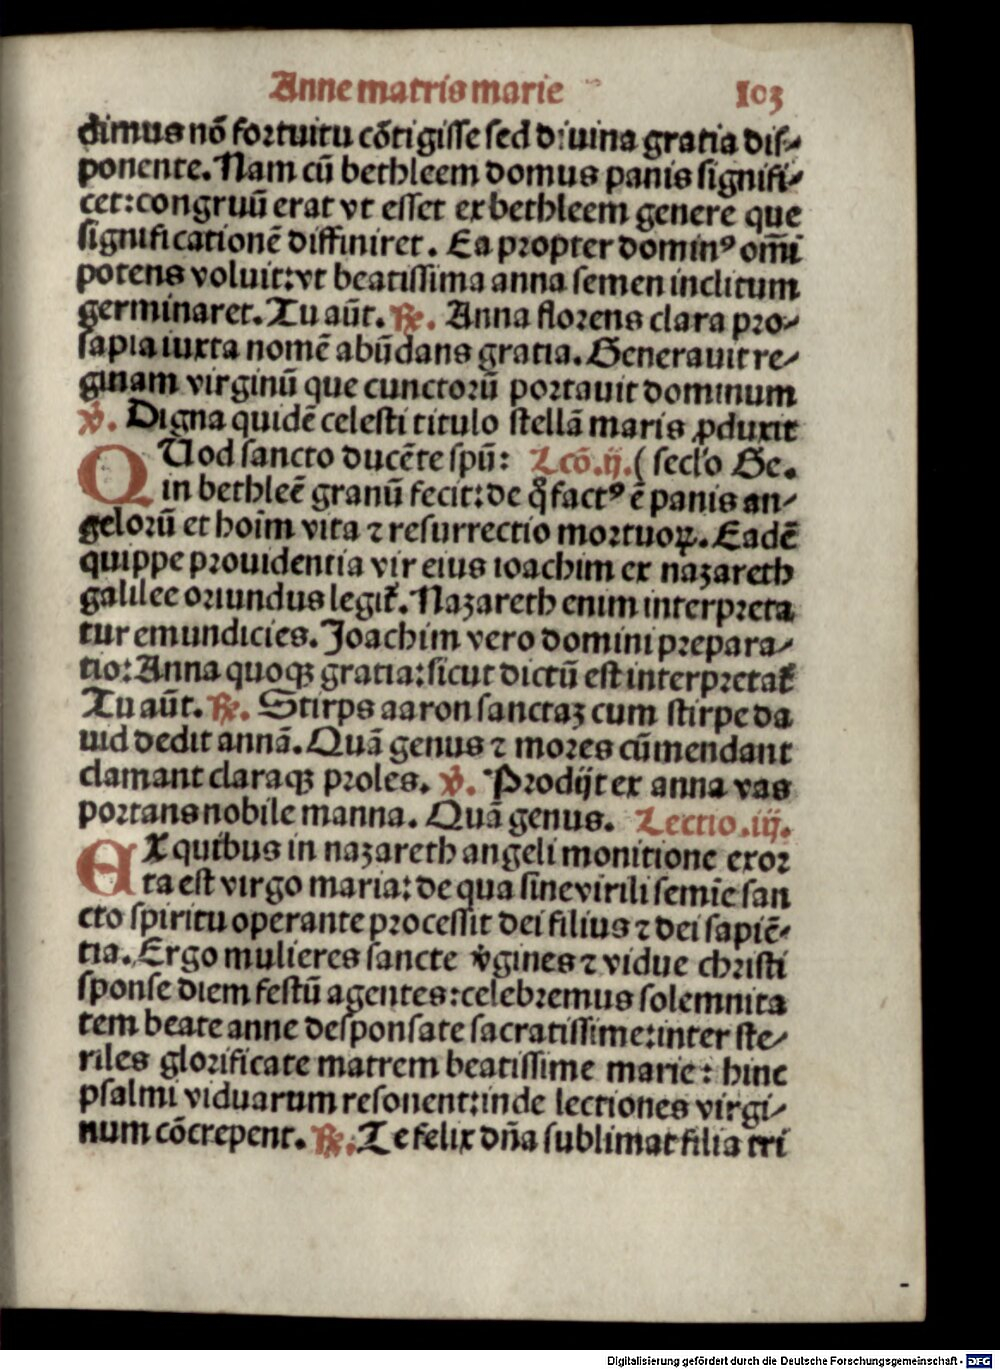 Anne matris marie 103
dimus nō fortuitu cōtigisse sed diuina gratia dis-
ponente. Nam cū bethleem domus panis signifi-
cet: congruū erat vt esset ex bethleem genere que
significationē diffiniret. Ea propter dominꝰ om̄i
potens voluit: vt beatissima anna semen inclitum
germinaret. Tu aūt. ℟. Anna florens clara pro-
sapia iuxta nomē abūdans gratia. Generauit re-
ginam virginū que cunctorū portauit dominum
℣. Digna quidē celesti titulo stellā maris ꝓduxit
QUod sancto ducēte spū: Lcō. ij. ( seclo Ge.
in bethleē granū fecit: de q̊ factꝰ ē panis an-
gelorū et hoīm vita ⁊ resurrectio mortuoꝝ. Eadē
quippe prouidentia vir eius ioachim ex nazareth
galilee oriundus legit̃. Nazareth enim interpreta
tur emundicies. Joachim vero domini prepara-
tio: Anna quoqꝫ gratia: sicut dictū est interpretat̃
Tu aūt. ℟. Stirps aaron sanctaꝫ cum stirpe da
uid dedit annā. Quā genus ⁊ mores cūmendant
clamant claraqꝫ proles. ℣. Prodijt ex anna vas
portans nobile manna. Quā genus. Lectio. iij.
EX quibus in nazareth angeli monitione exor
ta est virgo maria: de qua sine virili semīe san
cto spiritu operante processit dei filius ⁊ dei sapiē-
tia. Ergo mulieres sancte v̾gines ⁊ vidue christi
sponse diem festū agentes: celebremus solemnita
tem beate anne desponsate sacratissime: inter ste-
riles glorificate matrem beatissime marie: hinc
psalmi viduarum resonent: inde lectiones virgi-
num cōcrepent. ℟. Te felix dn̄a sublimat filia tri
Digitalisierung gefördert durch die Deutsche Forschungsgemeinschaft - DFG